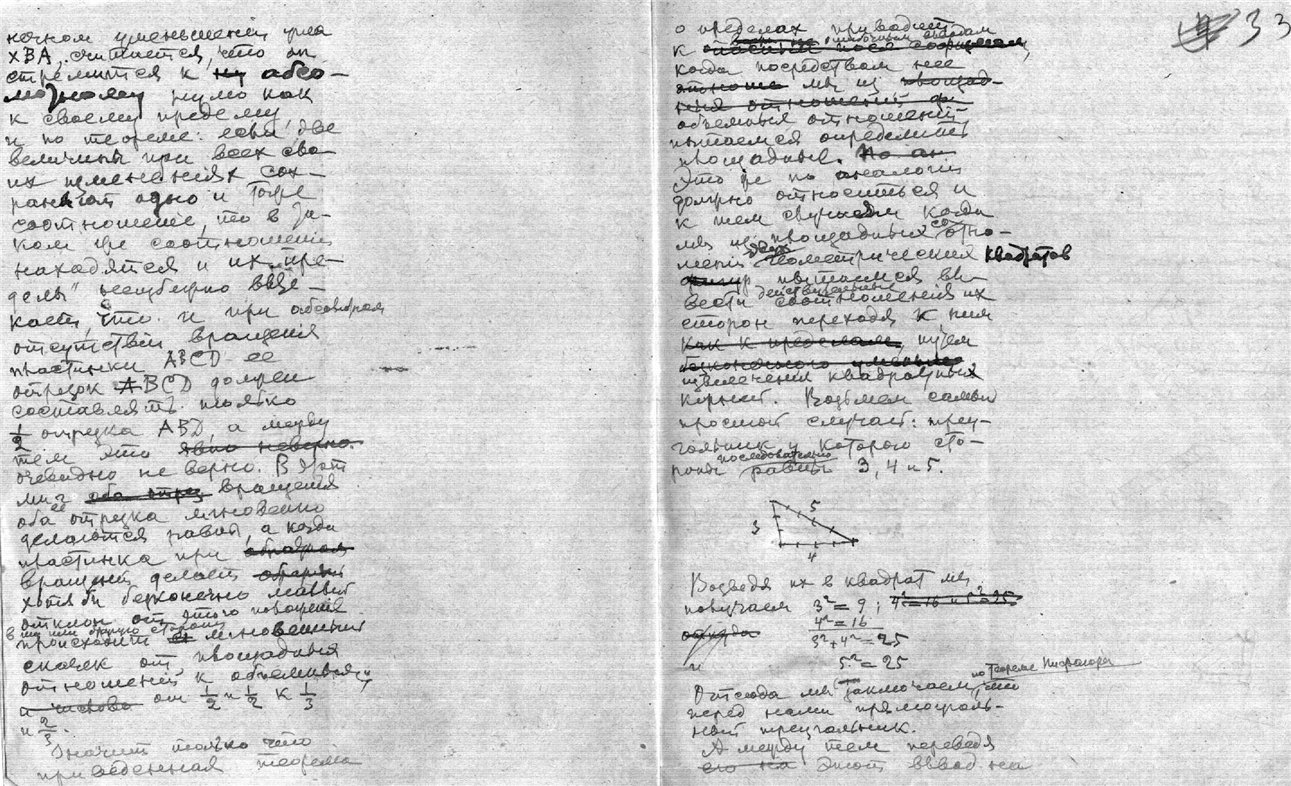 нечном уменьшении угла
XBA, считается, что он
стремится к абсо-
лютному нулю как
к своему пределу,
и по теореме: если "две
величины при всех сво-
их изменениях сох-
раняют одно и тоже
соотношение, то в та-
ком же соотношении
находятся и их пре-
делы"
что и при абсолютном
отсутствии вращения
пластинки ABCD ее
отрезок BCD должен
составлять только
1/2 отрезка ABD, а между
тем это явно неверно.
очевидно не верно. В этот
миг оба отрез вращения
оба отрезка мгновенно
делаются равны, а когда
пластинка при
вращении делает
хотя бы бесконечно малый
отклон от этого поворота
в ту или другую сторону
происходит мгновенный
скачек от площадных
отношений к объемным,
а числово от 1/2 и 1/2 к 1/3
и 2/3.
Значит только что
приведенная теорема
33
о пределах приводит
к ошибочным выводам
когда посредством нее
мы из площад-
ных отношений
объемных отношений
пытаемся определить
площадные. По ан
Это же по аналогии
должно относиться и
к тем случаям когда
мы из площадных соотно-
шений двух геометрических квадратов
фигур пытаемся вы-
вести действительные соотношения их
сторон переходя к ним
как к пределам путем
бесконечного уменьше
извлечения квадратных
корней. Возьмем самый
простой случай: треу-
гольник у которого сто-
роны последовательно равны 3, 4 и 5.
5
3
4
Возведя их в квадрат мы
получаем 3² = 9; 4² = 16 и 5² = 25
4² = 16
откуда 3² + 4² = 25
и 5² = 25
по теореме Пифагора
Отсюда мы заключаем, что
перед нами прямоуголь-
ный треугольник.
А между тем переведя
его на этот вывод на